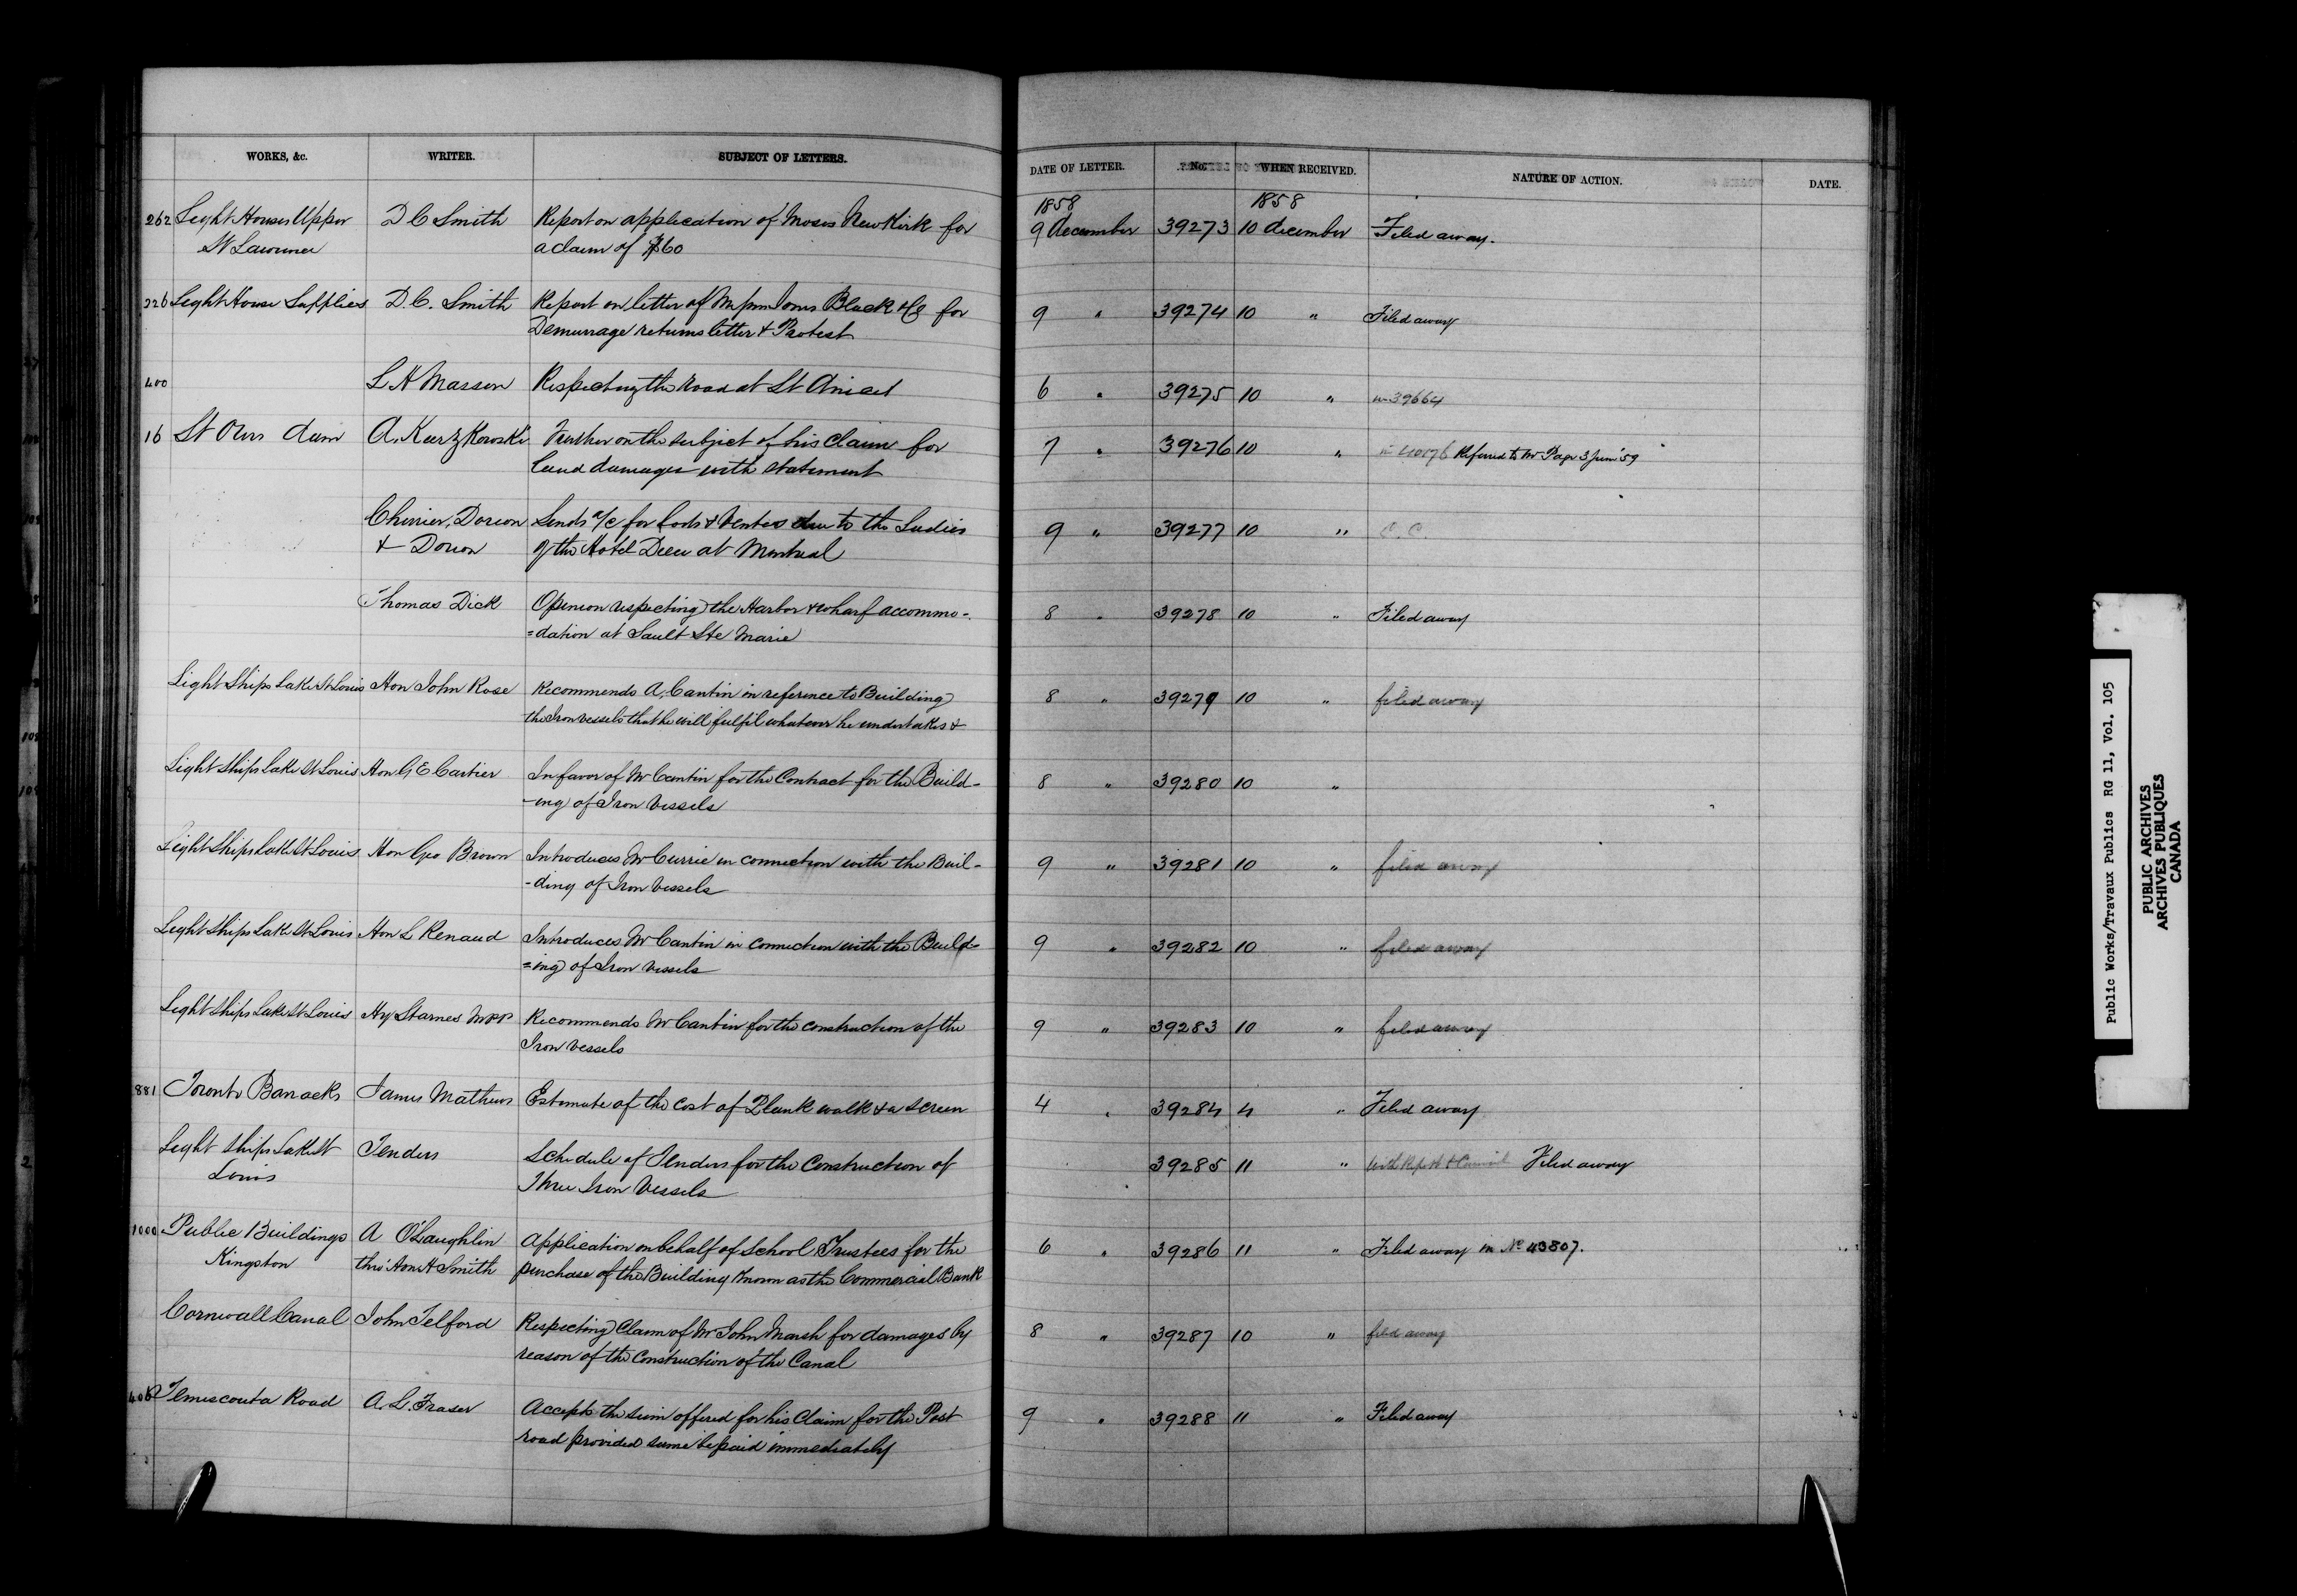 WORKS, &c. WRITER. SUBJECT OF LETTERS. DATE OF LETTER. No. WHEN RECEIVED. NATURE OF ACTION. DATE.
1858 1858
262 Light Houses Upper D C Smith Report on application of Moses Newkirk for 9 December 39273 10 december Filed away.
St Lawrence a claim of $60
226 Light House Supplies D. C. Smith Report on letter of Black & Co for 9 " 39274 10 " Filed away
Demurrage returns letter & Protest
400 L H Masson Respecting the road at St Anicet 6 " 39275 10 " in 39664
16 St Ours dam A. Kierzkowski Further on the subject of his claim for 7 " 39276 10 " Referred to Mr Page 3 June '59
land damages with statement
Cherrier, Dorion Sends a/c for Lods & Ventes due to the Ladies 9 " 39277 10 " C. C.
& Dorion of the Hotel Dieu at Montreal
Thomas Dick Opinion respecting the Harbor & wharf accommo- 8 " 39278 10 " Filed away
=dation at Sault Ste Marie
Light Ships Lake St Louis Hon John Rose Recommends A. Cantin in reference to Building 8 " 39279 10 " filed away
the Iron vessels that he will fulfil whatever he undertakes &
Light Ships Lake St Louis Hon G E Cartier In favor of Mr Cantin for the Contract for the Build- 8 " 39280 10 "
-ing of Iron Vessels
Light Ships Lake St Louis Hon Geo Brown Introduces Mr Currie in connection with the Buil- 9 " 39281 10 " filed away
-ding of Iron Vessels
Light Ships Lake St Louis Hon L Renaud Introduces Mr Cantin in connection with the Build= 9 " 39282 10 " filed away
=ing of Iron Vessels
Light Ships Lake St Louis Hy Starnes MPP Recommends Mr Cantin for the construction of the 9 " 39283 10 " filed away
Iron Vessels
881 Toronto Barracks James Mathews Estimate of the cost of Plank walk & a screen 4 " 39284 4 " Filed away
Light Ships Lake St Tenders Schedule of Tenders for the Construction of 39285 11 " Filed away
Louis Three Iron Vessels
1000 Public Buildings A O'Laughlin Application on behalf of School Trustees for the 6 " 39286 11 " Filed away in No 43807.
Kingston thro' Hon H Smith purchase of the Building known as the Commercial Bank
Cornwall Canal John Telford Respecting Claim of Mr John Marsh for damages by 8 " 39287 10 " filed away
reason of the Construction of the Canal
Temiscouta Road A. L. Fraser Accepts the sum offered for his Claim for the Post 9 " 39288 11 " Filed away
road provided same be paid immediately
Public Works/Travaux Publics RG 11, Vol. 105
PUBLIC ARCHIVES
ARCHIVES PUBLIQUES
CANADA